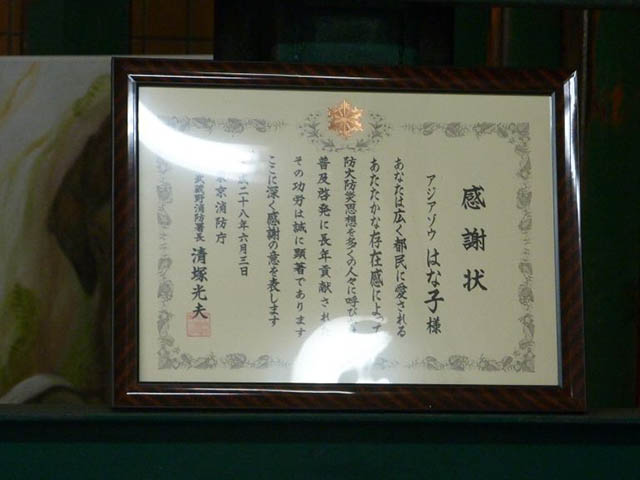 感謝状
アジアゾウ はな子様
あなたは広く都民に愛される
あたたかな存在感によって
防火防災思想を多くの人々に呼び
普及啓発に長年貢献され
その功労は誠に顕著であります
ここに深く感謝の意を表します
成二十八年六月三日
京消防庁
武蔵野消防署長 清塚光夫